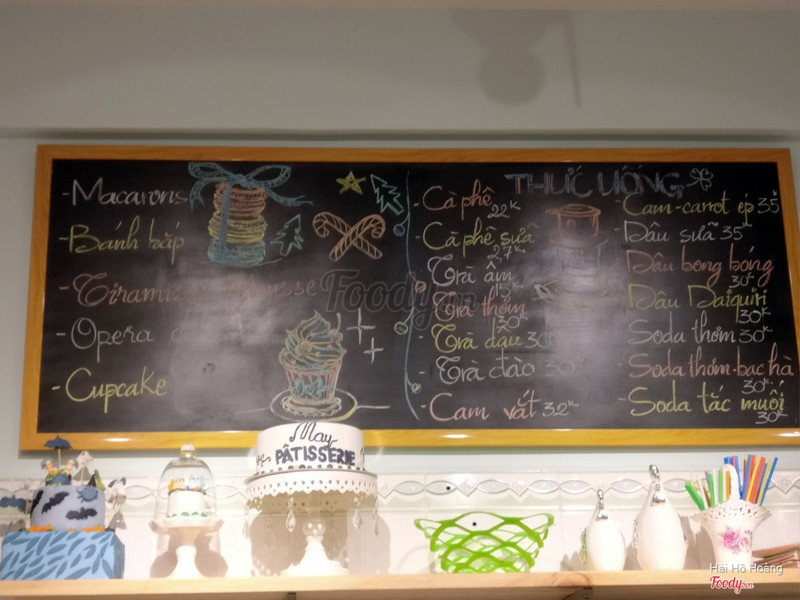 -Macarons
-Bánh bắp
-Tiramisu mousse
-Opera
-Cupcake
THỨC UỐNG
-Cà phê 22k
-Cà phê sữa 27k
-Trà ấm 15k
-Trà thơm 30k
-Trà dâu 30k
-Trà đào 30k
-Cam vắt 32k
-Cam-carrot ép 35k
-Dâu sữa 35k
-Dâu bong bóng 30k
-Dâu Daiquiri 30k
-Soda thơm 30k
-Soda thơm-bạc hà 30k
-Soda tắc muối 30k
May
PÂTISSERIE
Foody.vn
Hai Hồ Hoàng
Foody.vn